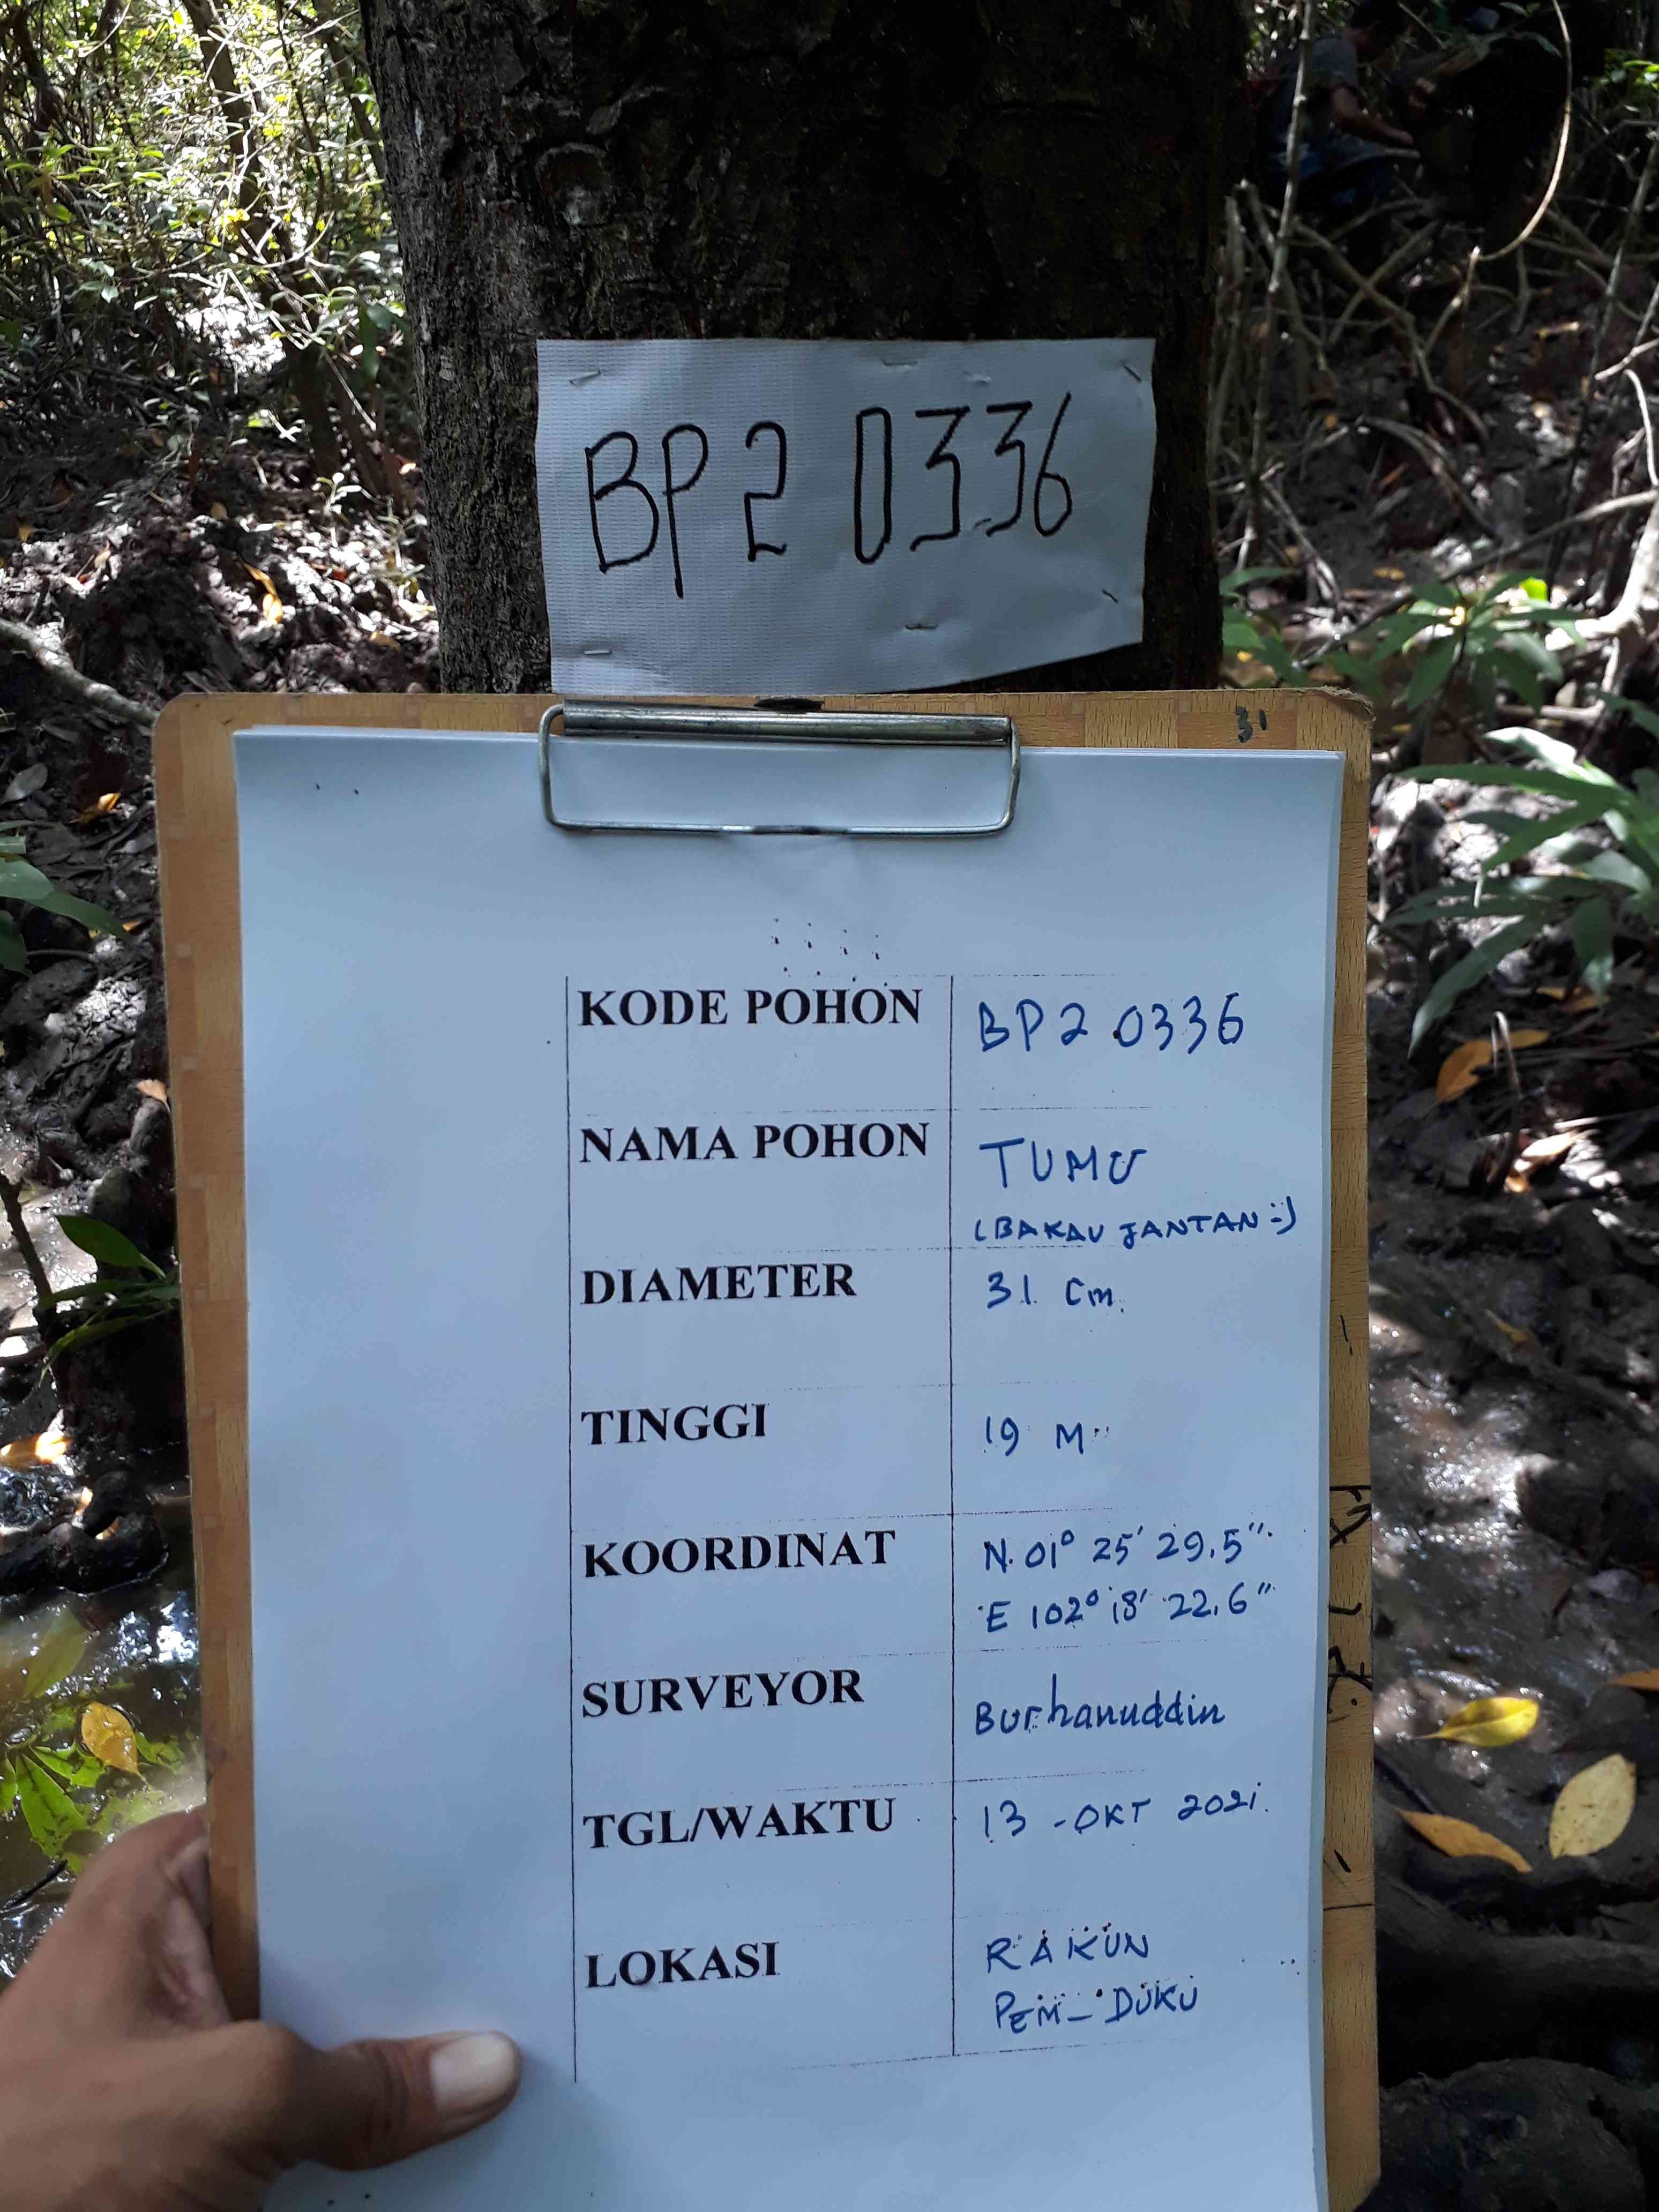 BP2 0336
31
KODE POHON BP2 0336
NAMA POHON TUMU
(BAKAU JANTAN)
DIAMETER 31 Cm.
TINGGI 19 M
KOORDINAT N. 01° 25' 29.5"
E 102° 18' 22.6"
SURVEYOR Burhanuddin
TGL/WAKTU 13 - OKT 2021.
LOKASI RAKUN
PEM- DUKU